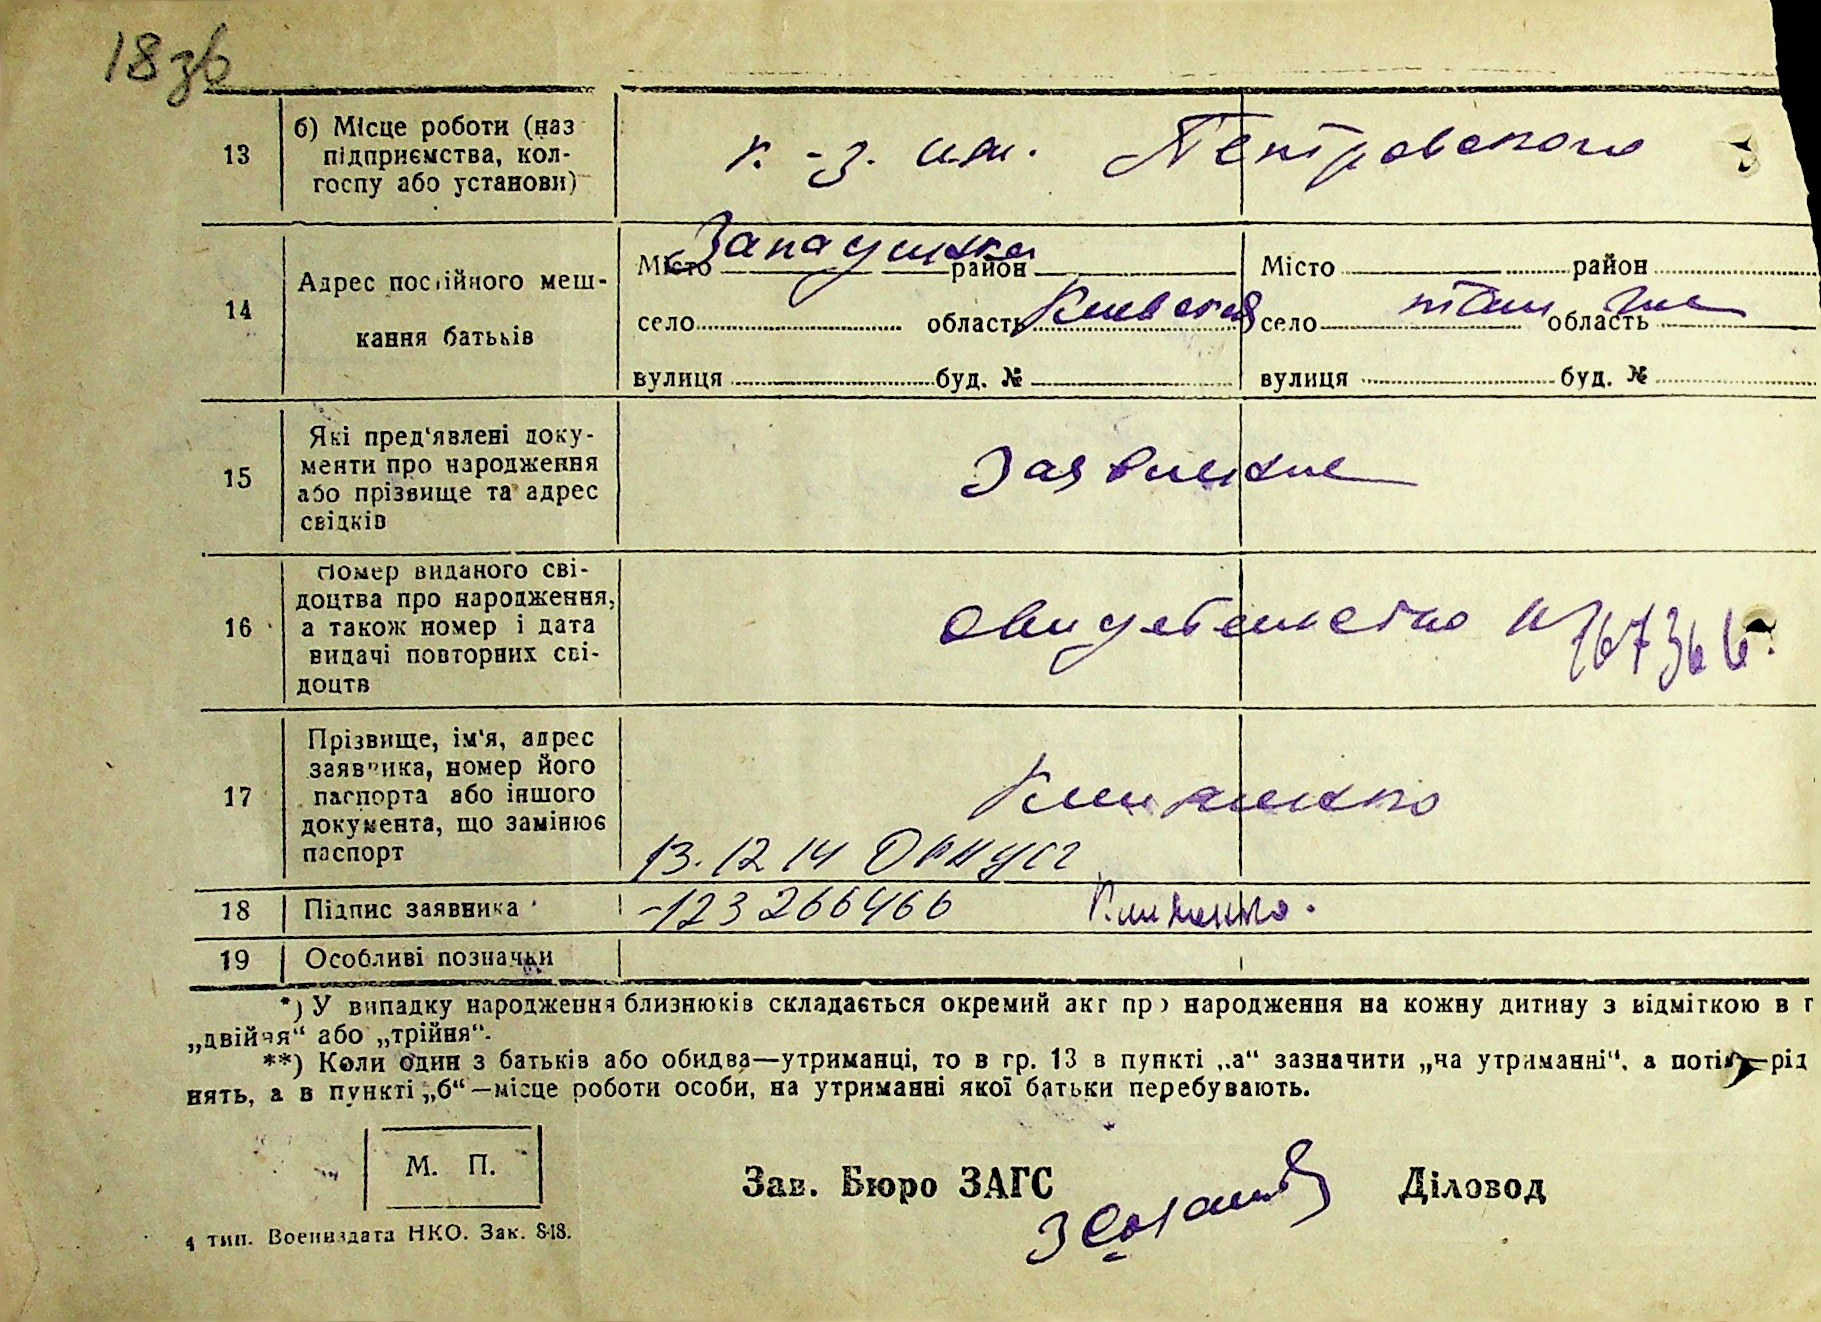 18 зв
13
б) Місце роботи (наз
підприємства, кол-
госпу або установи)
к.-з. им. Петровского
14
Адрес постійного меш-
кання батьків
Місто район
село область Киевская
вулиця буд. №
Місто район
село область
вулиця буд. №
15
Які пред'явлені доку-
менти про народження
або прізвище та адрес
свідків
Заявление
16
Номер виданого сві-
доцтва про народження,
а також номер і дата
видачі повторних сві-
доцтв
свидетельство №
17
Прізвище, ім'я, адрес
заявника, номер його
паспорта або іншого
документа, що замінює
паспорт
Клименко
13.12 14
18 Підпис заявника
-123 266466 Клименко.
19 Особливі позначки
*) У випадку народження близнюків складається окремий акт про народження на кожну дитину з відміткою в г
„двійня“ або „трійня“.
**) Коли один з батьків або обидва—утриманці, то в гр. 13 в пункті „а“ зазначити „на утриманні“, а потім—рід
нять, а в пункті „б“—місце роботи особи, на утриманні якої батьки перебувають.
М. П.
Зав. Бюро ЗАГС
Діловод
4 тип. Воениздата НКО. Зак. 848.